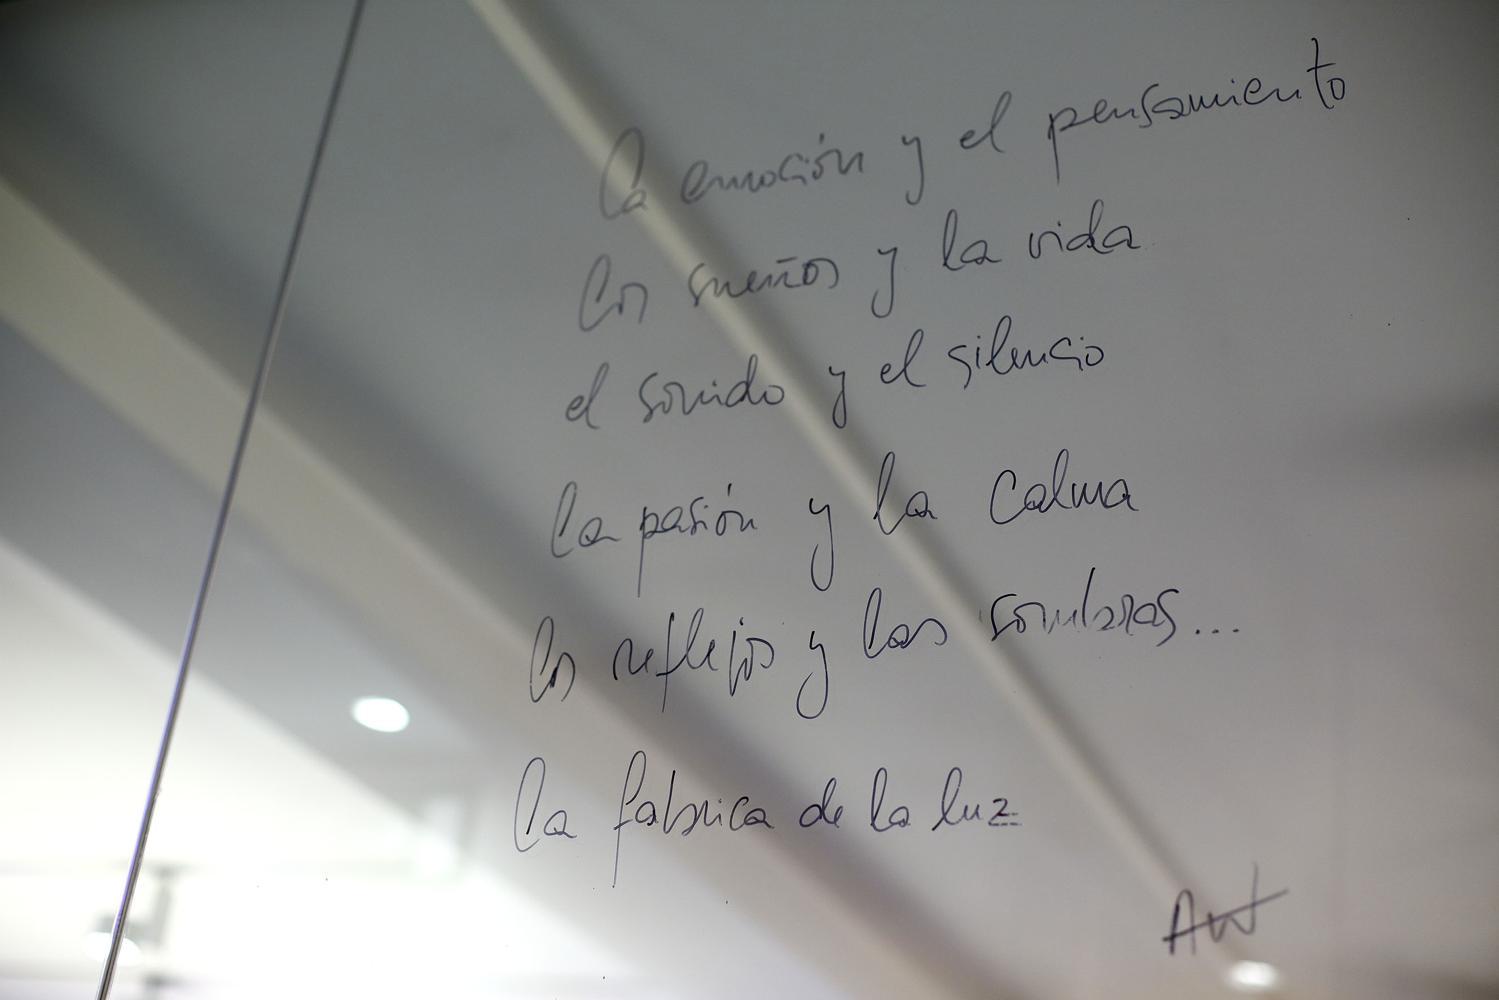 La emoción y el pensamiento
los sueños y la vida
el sonido y el silencio
la pasión y la calma
los reflejos y las sombras...
la fabrica de la luz